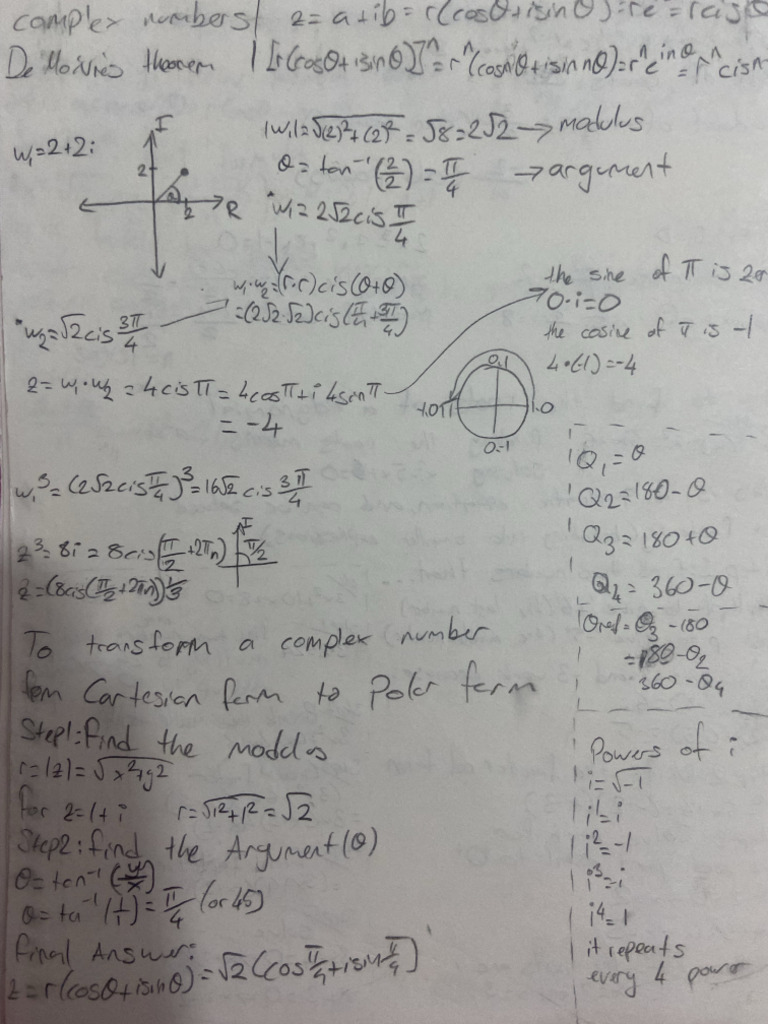 complex numbers z = a+ib = r(cosθ+isinθ) = re = rcisθ
De Moivre's theorem [r(cosθ+isinθ)]ⁿ = rⁿ(cosnθ+isin nθ) = rⁿe^inθ = rⁿcisn
w₁=2+2i
I
2
2
R
|w₁| = √(2)²+(2)² = √8 = 2√2 → modulus
θ = tan⁻¹(2/2) = π/4 → argument
*w₁ = 2√2 cis π/4
w₁·w₂ = (r·r)cis(θ+θ)
= (2√2·√2)cis(π/4+3π/4)
*w₂ = √2 cis 3π/4
z = w₁·w₂ = 4cisπ = 4cosπ+i4sinπ
= -4
the sine of π is
0·i=0
the cosine of π is -1
4·(-1) = -4
0.1
-1.0
π
1.0
0.-1
w₁³ = (2√2cisπ/4)³ = 16√2 cis 3π/4
z³ = 8i = 8cis(π/2+2πn)
I
π/2
z = (8cis(π/2+2πn))^1/3
Q₁ = θ
Q2 = 180-θ
Q₃ = 180+θ
Q₄ = 360-θ
θref = θ₃ -180
= 180-θ₂
360-θ₄
To transform a complex number
fom Cartesian form to Polar form
Step1: find the modulos
r = |z| = √x²+y²
for z = 1+i r = √1²+1² = √2
Step2: find the Argument(θ)
θ = tan⁻¹(y/x)
θ = ta⁻¹(1/1) = π/4 (or 45)
final Answer:
z = r(cosθ+isinθ) = √2(cosπ/4+isinπ/4)
Powers of i
i = √-1
i¹ = i
i² = -1
i³ = -i
i⁴ = 1
it repeats
every 4 power